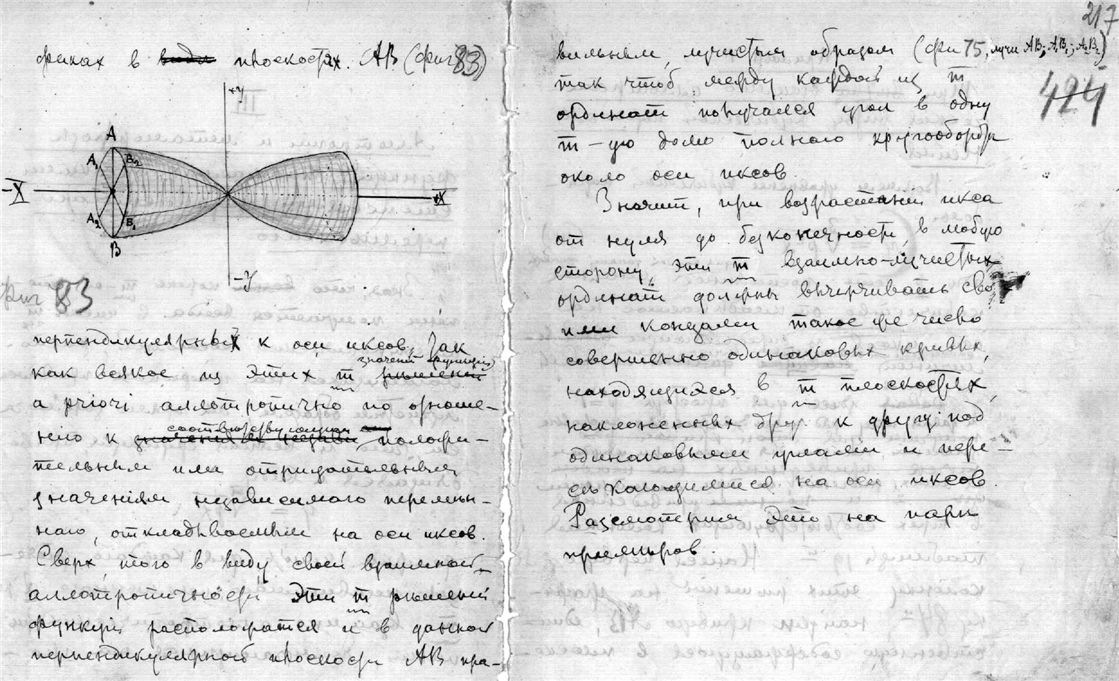 фиках в плоскостях AB (фиг 83)
+У
A
A₁
B₂
-X
+X
A₂
B₁
B
-У
фиг 83
перпендикулярных к оси иксов. Так
значений функции
как всякое из этих m
а priori аллотропично по отноше-
соответствующим
нию к положи-
тельным или отрицательным
значениям независимого перемен-
наго, откладываемым на оси иксов.
Сверх того в виду своей взаимной
аллотропичности эти m решений
функции расположатся и в данной
перпендикулярной плоскости AB пра-
217
424
вильным, лучистым образом (фи 75, лучи AB; A₁B₁; A₂B₂)
так чтоб между каждой из m
ординат получался угол в одну
m-ую долю полного кругооборота
около оси иксов.
Значит, при возрастании икса
от нуля до безконечности, в любую
сторону, эти m взаимно-лучистых
ординат должны вычерчивать сво
ими концами такое же число
совершенно одинаковых кривых,
находящихся в m плоскостях,
наклоненных друг к другу под
одинаковыми углами и пере-
секающимися на оси иксов.
Разсмотрим это на паре
примеров.